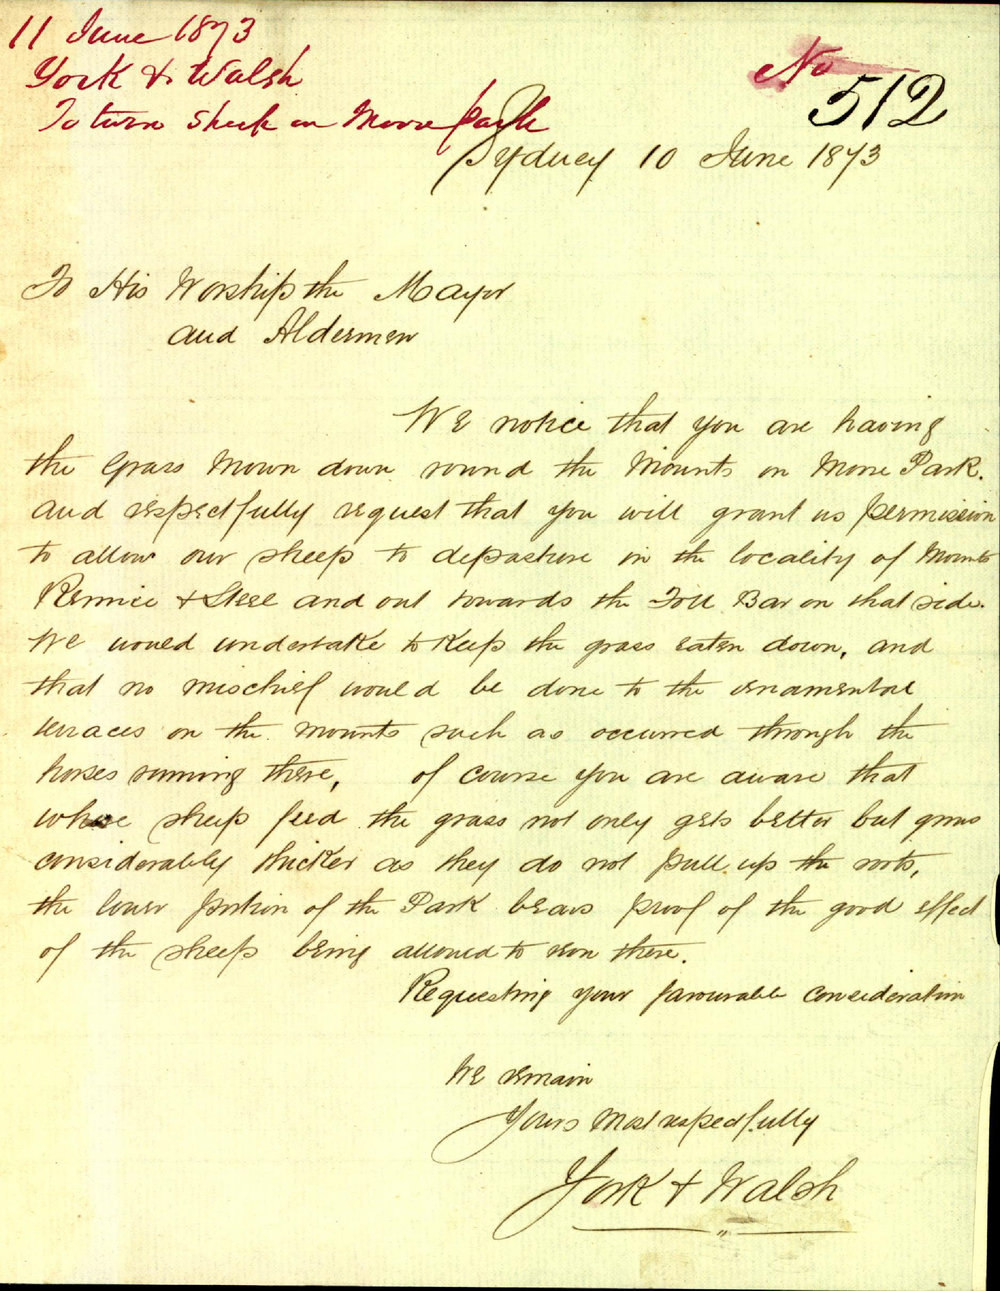 11 June 1873
York & Walsh
To turn Sheep on Moore park
No
512
Sydney 10 June 1873
To His Worship the Mayor
and Aldermen
We notice that you are having
the Grass Mown down round the Mounts on Moore Park.
and respectfully request that you will grant us permission
to allow our sheep to depasture in the locality of Mounts
Rennie & Steel and out towards the Toll Bar on that side.
We would undertake to keep the grass eaten down, and
that no mischief would be done to the ornamental
terraces on the mounts such as occurred through the
horses running there, of course you are aware that
where sheep feed the grass not only gets better but grows
considerably thicker as they do not pull up the roots,
the lower portion of the Park bears proof of the good effect
of the sheep being allowed to run there.
Requesting your favourable consideration
We remain
Yours most respectfully
York & Walsh